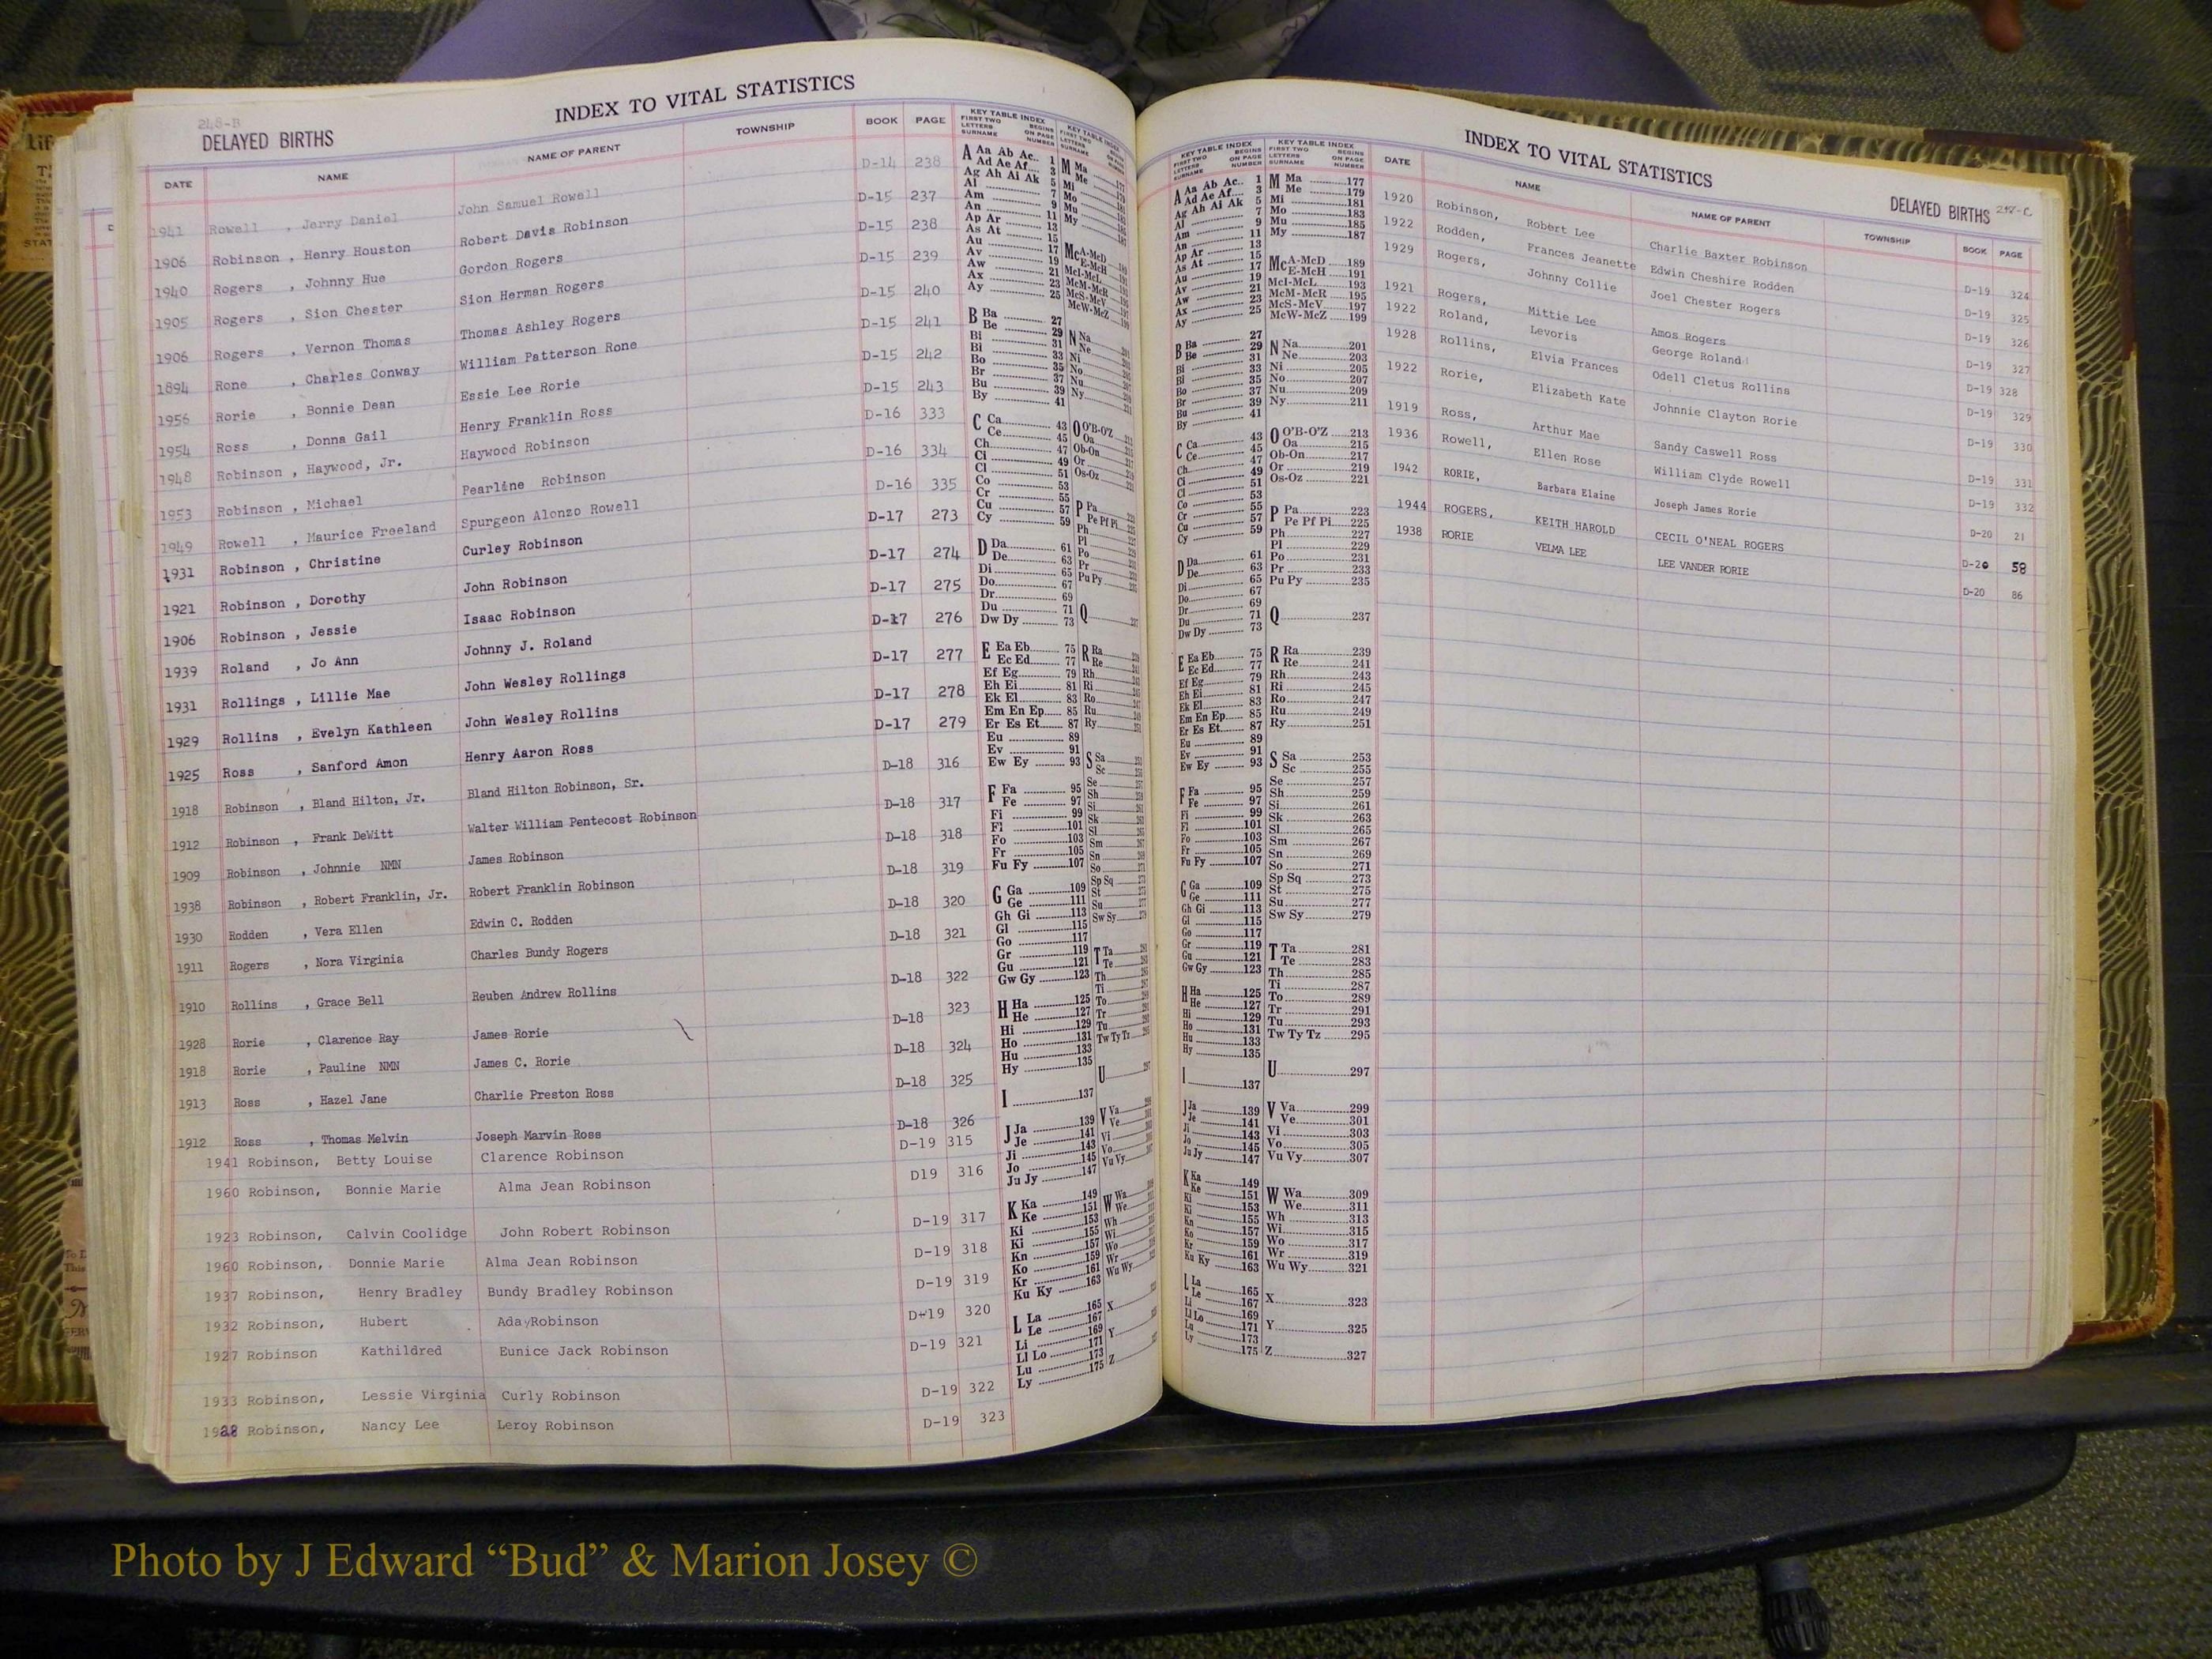 248-B
INDEX TO VITAL STATISTICS
DELAYED BIRTHS
DATE NAME NAME OF PARENT TOWNSHIP BOOK PAGE
1941 Rowell , Jerry Daniel John Samuel Rowell D-14 238
1906 Robinson , Henry Houston Robert Davis Robinson D-15 237
1940 Rogers , Johnny Hue Gordon Rogers D-15 238
1905 Rogers , Sion Chester Sion Herman Rogers D-15 239
1906 Rogers , Vernon Thomas Thomas Ashley Rogers D-15 240
1894 Rone , Charles Conway William Patterson Rone D-15 241
1956 Rorie , Bonnie Dean Essie Lee Rorie D-15 242
1954 Ross , Donna Gail Henry Franklin Ross D-15 243
1948 Robinson , Haywood, Jr. Haywood Robinson D-16 333
1953 Robinson , Michael Pearline Robinson D-16 334
1949 Rowell , Maurice Freeland Spurgeon Alonzo Rowell D-16 335
1931 Robinson , Christine Curley Robinson D-17 273
1921 Robinson , Dorothy John Robinson D-17 274
1906 Robinson , Jessie Isaac Robinson D-17 275
1939 Roland , Jo Ann Johnny J. Roland D-17 276
1931 Rollings , Lillie Mae John Wesley Rollings D-17 277
1929 Rollins , Evelyn Kathleen John Wesley Rollins D-17 278
1925 Ross , Sanford Amon Henry Aaron Ross D-17 279
1918 Robinson , Bland Hilton, Jr. Bland Hilton Robinson, Sr. D-18 316
1912 Robinson , Frank DeWitt Walter William Pentecost Robinson D-18 317
1909 Robinson , Johnnie NMN James Robinson D-18 318
1938 Robinson , Robert Franklin, Jr. Robert Franklin Robinson D-18 319
1930 Rodden , Vera Ellen Edwin C. Rodden D-18 320
1911 Rogers , Nora Virginia Charles Bundy Rogers D-18 321
1910 Rollins , Grace Bell Reuben Andrew Rollins D-18 322
1928 Rorie , Clarence Ray James Rorie D-18 323
1918 Rorie , Pauline NMN James C. Rorie D-18 324
1913 Ross , Hazel Jane Charlie Preston Ross D-18 325
1912 Ross , Thomas Melvin Joseph Marvin Ross D-18 326
1941 Robinson, Betty Louise Clarence Robinson D-19 315
1960 Robinson, Bonnie Marie Alma Jean Robinson D19 316
1923 Robinson, Calvin Coolidge John Robert Robinson D-19 317
1960 Robinson, Donnie Marie Alma Jean Robinson D-19 318
1937 Robinson, Henry Bradley Bundy Bradley Robinson D-19 319
1932 Robinson, Hubert Ada Robinson D-19 320
1927 Robinson Kathildred Eunice Jack Robinson D-19 321
1933 Robinson, Lessie Virginia Curly Robinson D-19 322
1928 Robinson, Nancy Lee Leroy Robinson D-19 323
INDEX TO VITAL STATISTICS
DELAYED BIRTHS
DATE NAME NAME OF PARENT TOWNSHIP BOOK PAGE
1920 Robinson, Robert Lee Charlie Baxter Robinson D-19 324
1922 Rodden, Frances Jeanette Edwin Cheshire Rodden D-19 325
1929 Rogers, Johnny Collie Joel Chester Rogers D-19 326
1921 Rogers, Mittie Lee Amos Rogers D-19 327
1922 Roland, Levoris George Roland D-19 328
1928 Rollins, Elvia Frances Odell Cletus Rollins D-19 329
1922 Rorie, Elizabeth Kate Johnnie Clayton Rorie D-19 330
1919 Ross, Arthur Mae Sandy Caswell Ross D-19 331
1936 Rowell, Ellen Rose William Clyde Rowell D-19 332
1942 RORIE, Barbara Elaine Joseph James Rorie D-20 21
1944 ROGERS, KEITH HAROLD CECIL O'NEAL ROGERS D-20 58
1938 RORIE VELMA LEE LEE VANDER RORIE D-20 86
KEY TABLE INDEX KEY TABLE INDEX
FIRST TWO LETTERS SURNAME BEGINS ON PAGE NUMBER
A Aa Ab Ac 1 M Ma 177
Ad Ae Af 3 Me 179
Ag Ah Ai Ak 5 Mi 181
Al 7 Mo 183
Am 9 Mu 185
An 11 My 187
Ap Ar 13
As At 15
Au 17 McA-McD 189
Av 19 E-McH 191
Aw 21 McI-McL 193
Ax 23 McM-McR 195
Ay 25 McS-McV 197
McW-McZ 199
B Ba 27 N Na 201
Be 29 Ne 203
Bi 31 Ni 205
Bl 33 No 207
Bo 35 Nu 209
Br 37 Ny 211
Bu 39
By 41
C Ca 43 O O'B-O'Z 213
Ce 45 Oa 215
Ch 47 Ob-On 217
Ci 49 Or 219
Cl 51 Os-Oz 221
Co 53
Cr 55
Cu 57 P Pa 223
Cy 59 Pe Pf Pi 225
Ph 227
D Da 61 Pl 229
De 63 Po 231
Di 65 Pr 233
Do 67 Pu Py 235
Dr 69
Du 71 Q 237
Dw Dy 73
E Ea Eb 75 R Ra 239
Ec Ed 77 Re 241
Ef Eg 79 Rh 243
Eh Ei 81 Ri 245
Ek El 83 Ro 247
Em En Ep 85 Ru 249
Er Es Et 87 Ry 251
Eu 89
Ev 91
Ew Ey 93 S Sa 253
Sc 255
Se 257
F Fa 95 Sh 259
Fe 97 Si 261
Fi 99 Sk 263
Fl 101 Sl 265
Fo 103 Sm 267
Fr 105 Sn 269
Fu Fy 107 So 271
Sp Sq 273
G Ga 109 St 275
Ge 111 Su 277
Gh Gi 113 Sw Sy 279
Gl 115
Go 117
Gr 119 T Ta 281
Gu 121 Te 283
Gw Gy 123 Th 285
Ti 287
H Ha 125 To 289
He 127 Tr 291
Hi 129 Tu 293
Ho 131 Tw Ty Tz 295
Hu 133
Hy 135 U 297
I 137
J Ja 139 V Va 299
Je 141 Ve 301
Ji 143 Vi 303
Jo 145 Vo 305
Ju Jy 147 Vu Vy 307
K Ka 149 W Wa 309
Ke 151 We 311
Ki 153 Wh 313
Kl 155 Wi 315
Kn 157 Wo 317
Ko 159 Wr 319
Kr 161 Wu Wy 321
Ku Ky 163
L La 165 X 323
Le 167
Li 169 Y 325
Ll Lo 171
Lu 173 Z 327
Ly 175
Photo by J Edward “Bud” & Marion Josey ©